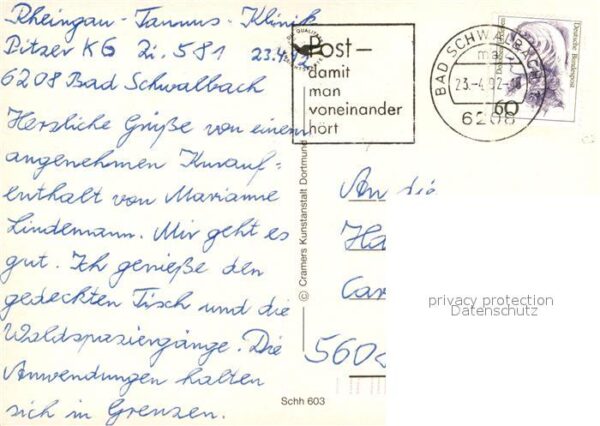 Rheingau-Taunus-Klinik
Pitzer KG Zi. 581 23.4.92
6208 Bad Schwalbach
Herzliche Grüße von einem
angenehmen Kurauf-
enthalt von Marianne
Lindemann. Mir geht es
gut. Ich genieße den
gedeckten Tisch und die
Waldspaziergänge. Die
Anwendungen halten
sich in Grenzen.
Post –
damit
man
voneinander
hört
BAD SCHWALBACH
23.-4.92
6208
Deutsche Bundespost
60
An die
Ha
Car
560
© Cramers Kunstanstalt Dortmund
Schh 603
privacy protection
Datenschutz